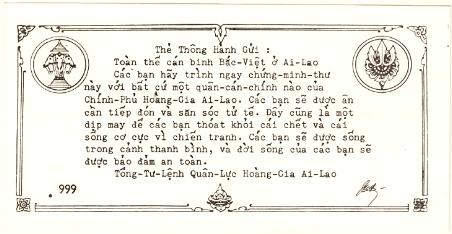 Thẻ Thông Hành Gửi:
Toàn thể cán binh Bắc-Việt ở Ai-Lao
Các bạn hãy trình ngay chứng-minh-thư
này với bất cứ một quân-cán-chính nào của
Chính-Phủ Hoàng-Gia Ai-Lao. Các bạn sẽ được ân
cần tiếp đón và săn sóc tử tế. Đây cũng là một
dịp may để các bạn thoát khỏi cái chết và cái
sống cơ cực vì chiến tranh. Các bạn sẽ được sống
trong cảnh thanh bình, và đời sống của các bạn sẽ
được bảo đảm an toàn.
Tổng-Tư-Lệnh Quân-Lực Hoàng-Gia Ai-Lao
.999